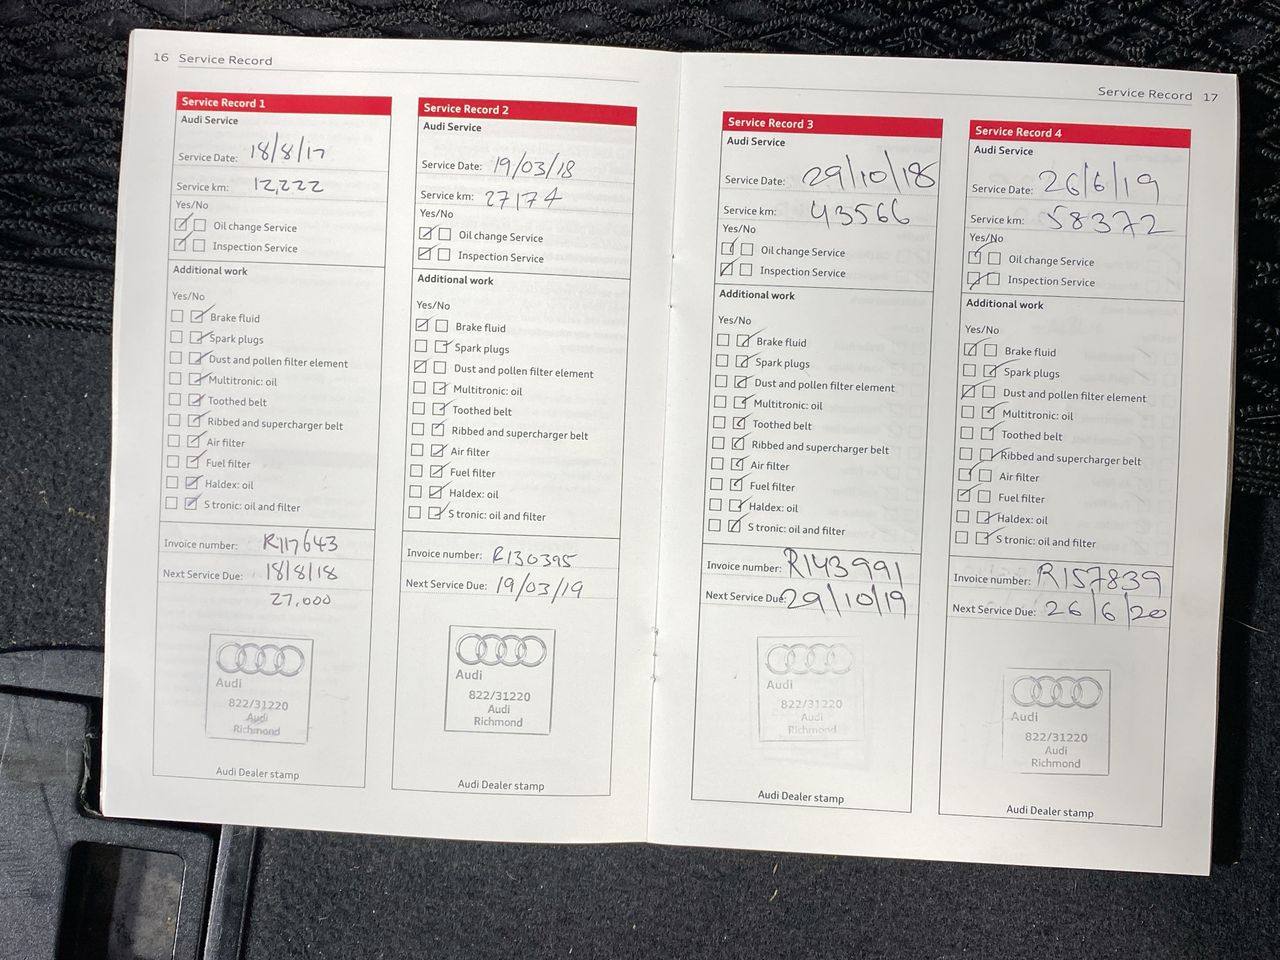 16 Service Record
Service Record 1
Audi Service
Service Date: 18/8/17
Service km: 12,222
Yes/No
Oil change Service
Inspection Service
Additional work
Yes/No
Brake fluid
Spark plugs
Dust and pollen filter element
Multitronic: oil
Toothed belt
Ribbed and supercharger belt
Air filter
Fuel filter
Haldex: oil
S tronic: oil and filter
Invoice number: R117643
Next Service Due: 18/8/18
27,000
Audi
822/31220
Audi
Richmond
Audi Dealer stamp
Service Record 2
Audi Service
Service Date: 19/03/18
Service km: 27174
Yes/No
Oil change Service
Inspection Service
Additional work
Yes/No
Brake fluid
Spark plugs
Dust and pollen filter element
Multitronic: oil
Toothed belt
Ribbed and supercharger belt
Air filter
Fuel filter
Haldex: oil
S tronic: oil and filter
Invoice number: R130395
Next Service Due: 19/03/19
Audi
822/31220
Audi
Richmond
Audi Dealer stamp
Service Record 17
Service Record 3
Audi Service
Service Date: 29/10/18
Service km: 43566
Yes/No
Oil change Service
Inspection Service
Additional work
Yes/No
Brake fluid
Spark plugs
Dust and pollen filter element
Multitronic: oil
Toothed belt
Ribbed and supercharger belt
Air filter
Fuel filter
Haldex: oil
S tronic: oil and filter
Invoice number: R143991
Next Service Due: 29/10/19
Audi
822/31220
Audi
Richmond
Audi Dealer stamp
Service Record 4
Audi Service
Service Date: 26/6/19
Service km: 58372
Yes/No
Oil change Service
Inspection Service
Additional work
Yes/No
Brake fluid
Spark plugs
Dust and pollen filter element
Multitronic: oil
Toothed belt
Ribbed and supercharger belt
Air filter
Fuel filter
Haldex: oil
S tronic: oil and filter
Invoice number: R157839
Next Service Due: 26/6/20
Audi
822/31220
Audi
Richmond
Audi Dealer stamp